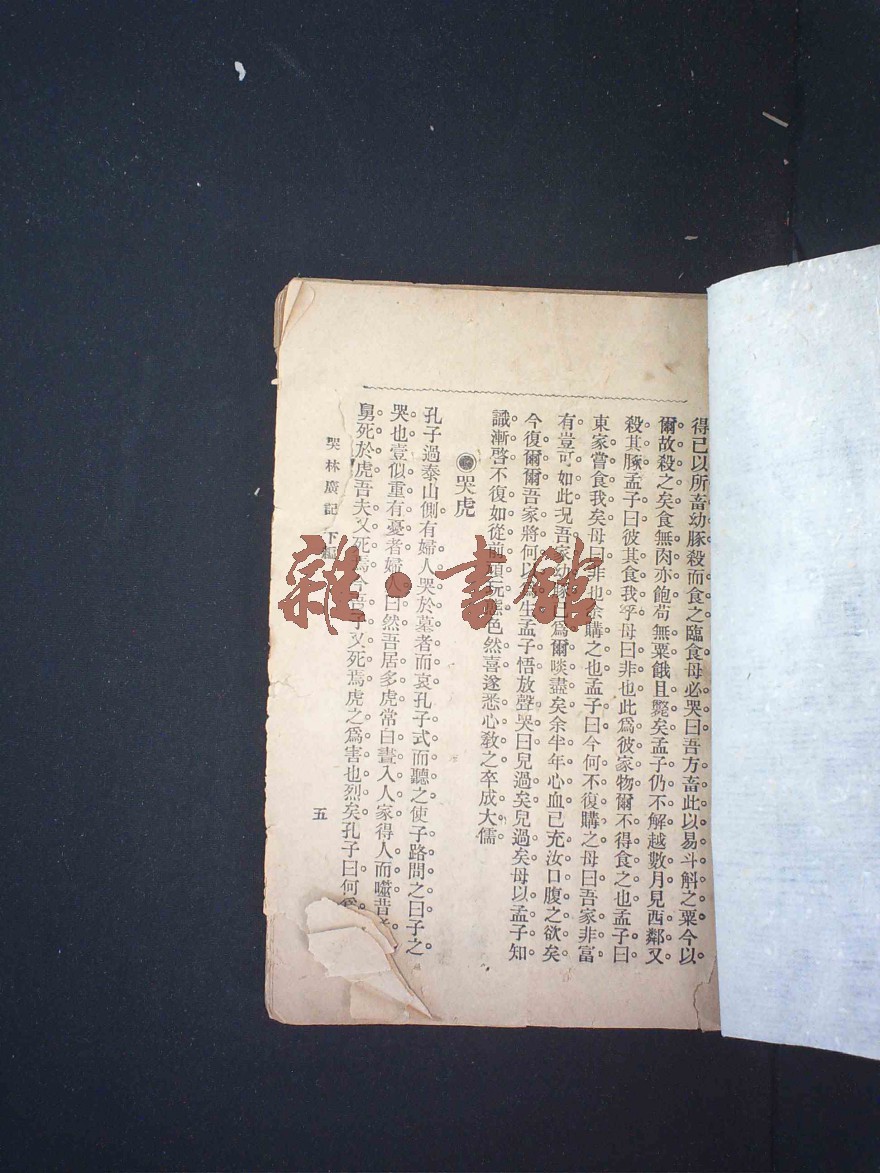 得已以所畜幼豚殺而食之臨食母必哭曰吾方畜此以易斗斛之粟今以
爾故殺之矣食無肉亦飽苟無粟餓且斃矣孟子仍不解越數月見西鄰又
殺其豚孟子曰彼其食我乎母曰非也此爲彼家物爾不得食之也孟子曰
東家嘗食我矣母曰非也余購之也孟子曰今何不復購之母曰吾家非富
有豈可如此况吾家幼豚已爲爾啖盡矣余半年心血已充汝口腹之欲矣
今復爾爾吾家將何以爲生孟子悟放聲哭曰兒過矣兒過矣母以孟子知
識漸啓不復如從前頑玩 色然喜遂悉心敎之卒成大儒
◉哭虎
孔子過泰山側有婦人哭於墓者而哀孔子式而聽之使子路問之曰子之
哭也壹似重有憂者婦人曰然吾居多虎常白晝入人家得人而噬昔
舅死於虎吾夫又死焉今吾子又死焉虎之爲害也烈矣孔子曰何爲
哭林廣記 下編
五
雜·書館